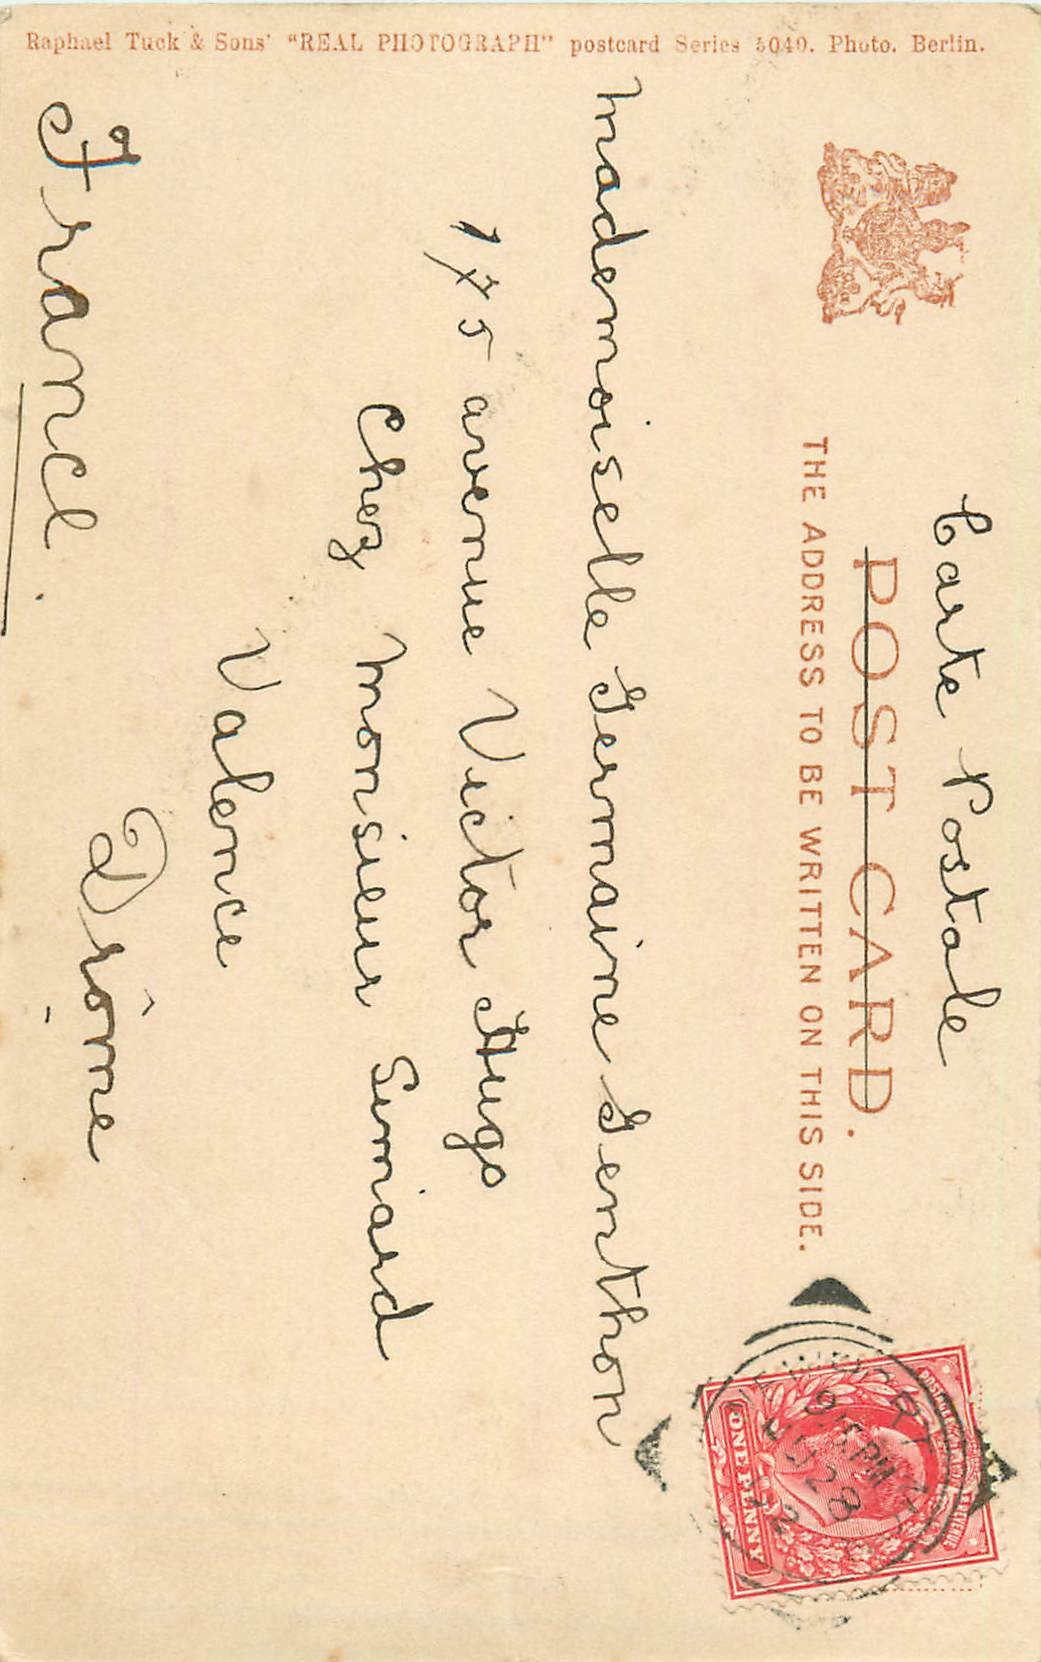 Raphael Tuck & Sons' "REAL PHOTOGRAPH" postcard Series 5040. Photo. Berlin.
Carte Postale
POST CARD.
THE ADDRESS TO BE WRITTEN ON THIS SIDE.
Mademoiselle Germaine Genthon
175 avenue Victor Hugo
Chez Monsieur Simiard
Valence
Drôme
France.
ONE PENNY
9.15 PM
28